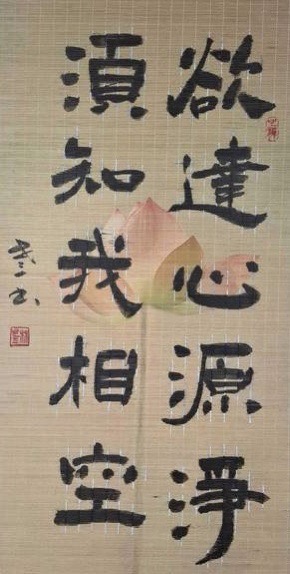 欲達心源淨
須知我相空